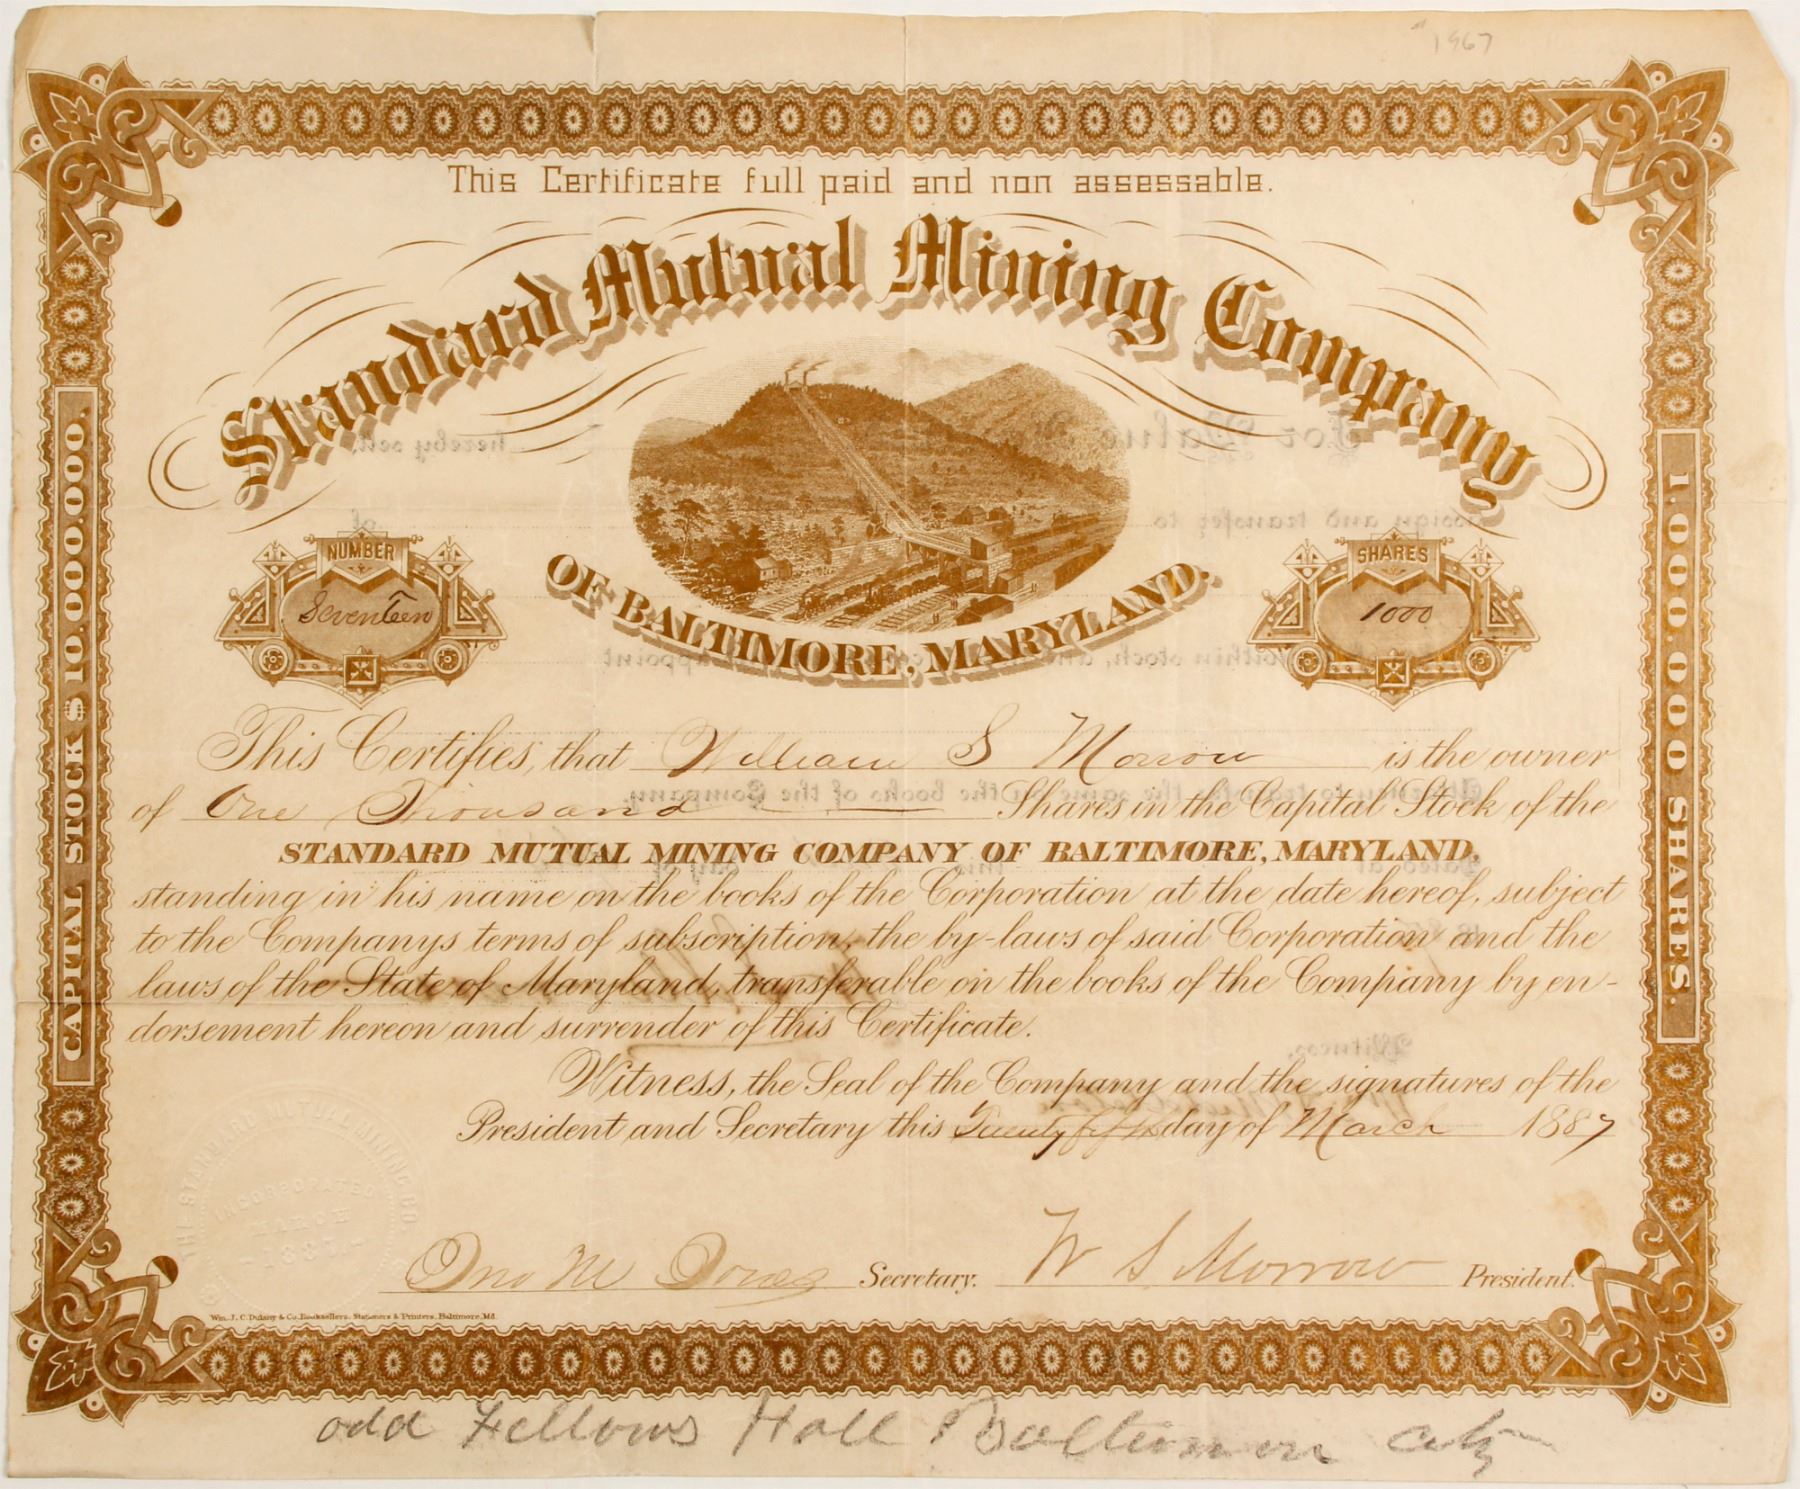 1967
This Certificate full paid and non assessable.
Standard Mutual Mining Company
OF BALTIMORE, MARYLAND.
CAPITAL STOCK $10.000.000.
1.000.000 SHARES.
NUMBER
Seventeen
SHARES
1000
This Certifies, that William S Morrow is the owner
of One Thousand Shares in the Capital Stock of the
STANDARD MUTUAL MINING COMPANY OF BALTIMORE, MARYLAND,
standing in his name on the books of the Corporation at the date hereof, subject
to the Companys terms of subscription, the by-laws of said Corporation and the
laws of the State of Maryland, transferable on the books of the Company by en-
dorsement hereon and surrender of this Certificate.
Witness, the Seal of the Company and the signatures of the
President and Secretary this Twenty fifth day of March 1887
THE STANDARD MUTUAL MINING CO.
INCORPORATED
MARCH
1887.
Jno M Jones Secretary. W S Morrow President.
Wm. J. C. Dulany & Co. Booksellers, Stationers & Printers, Baltimore, Md.
odd Fellows Hall Baltimore city